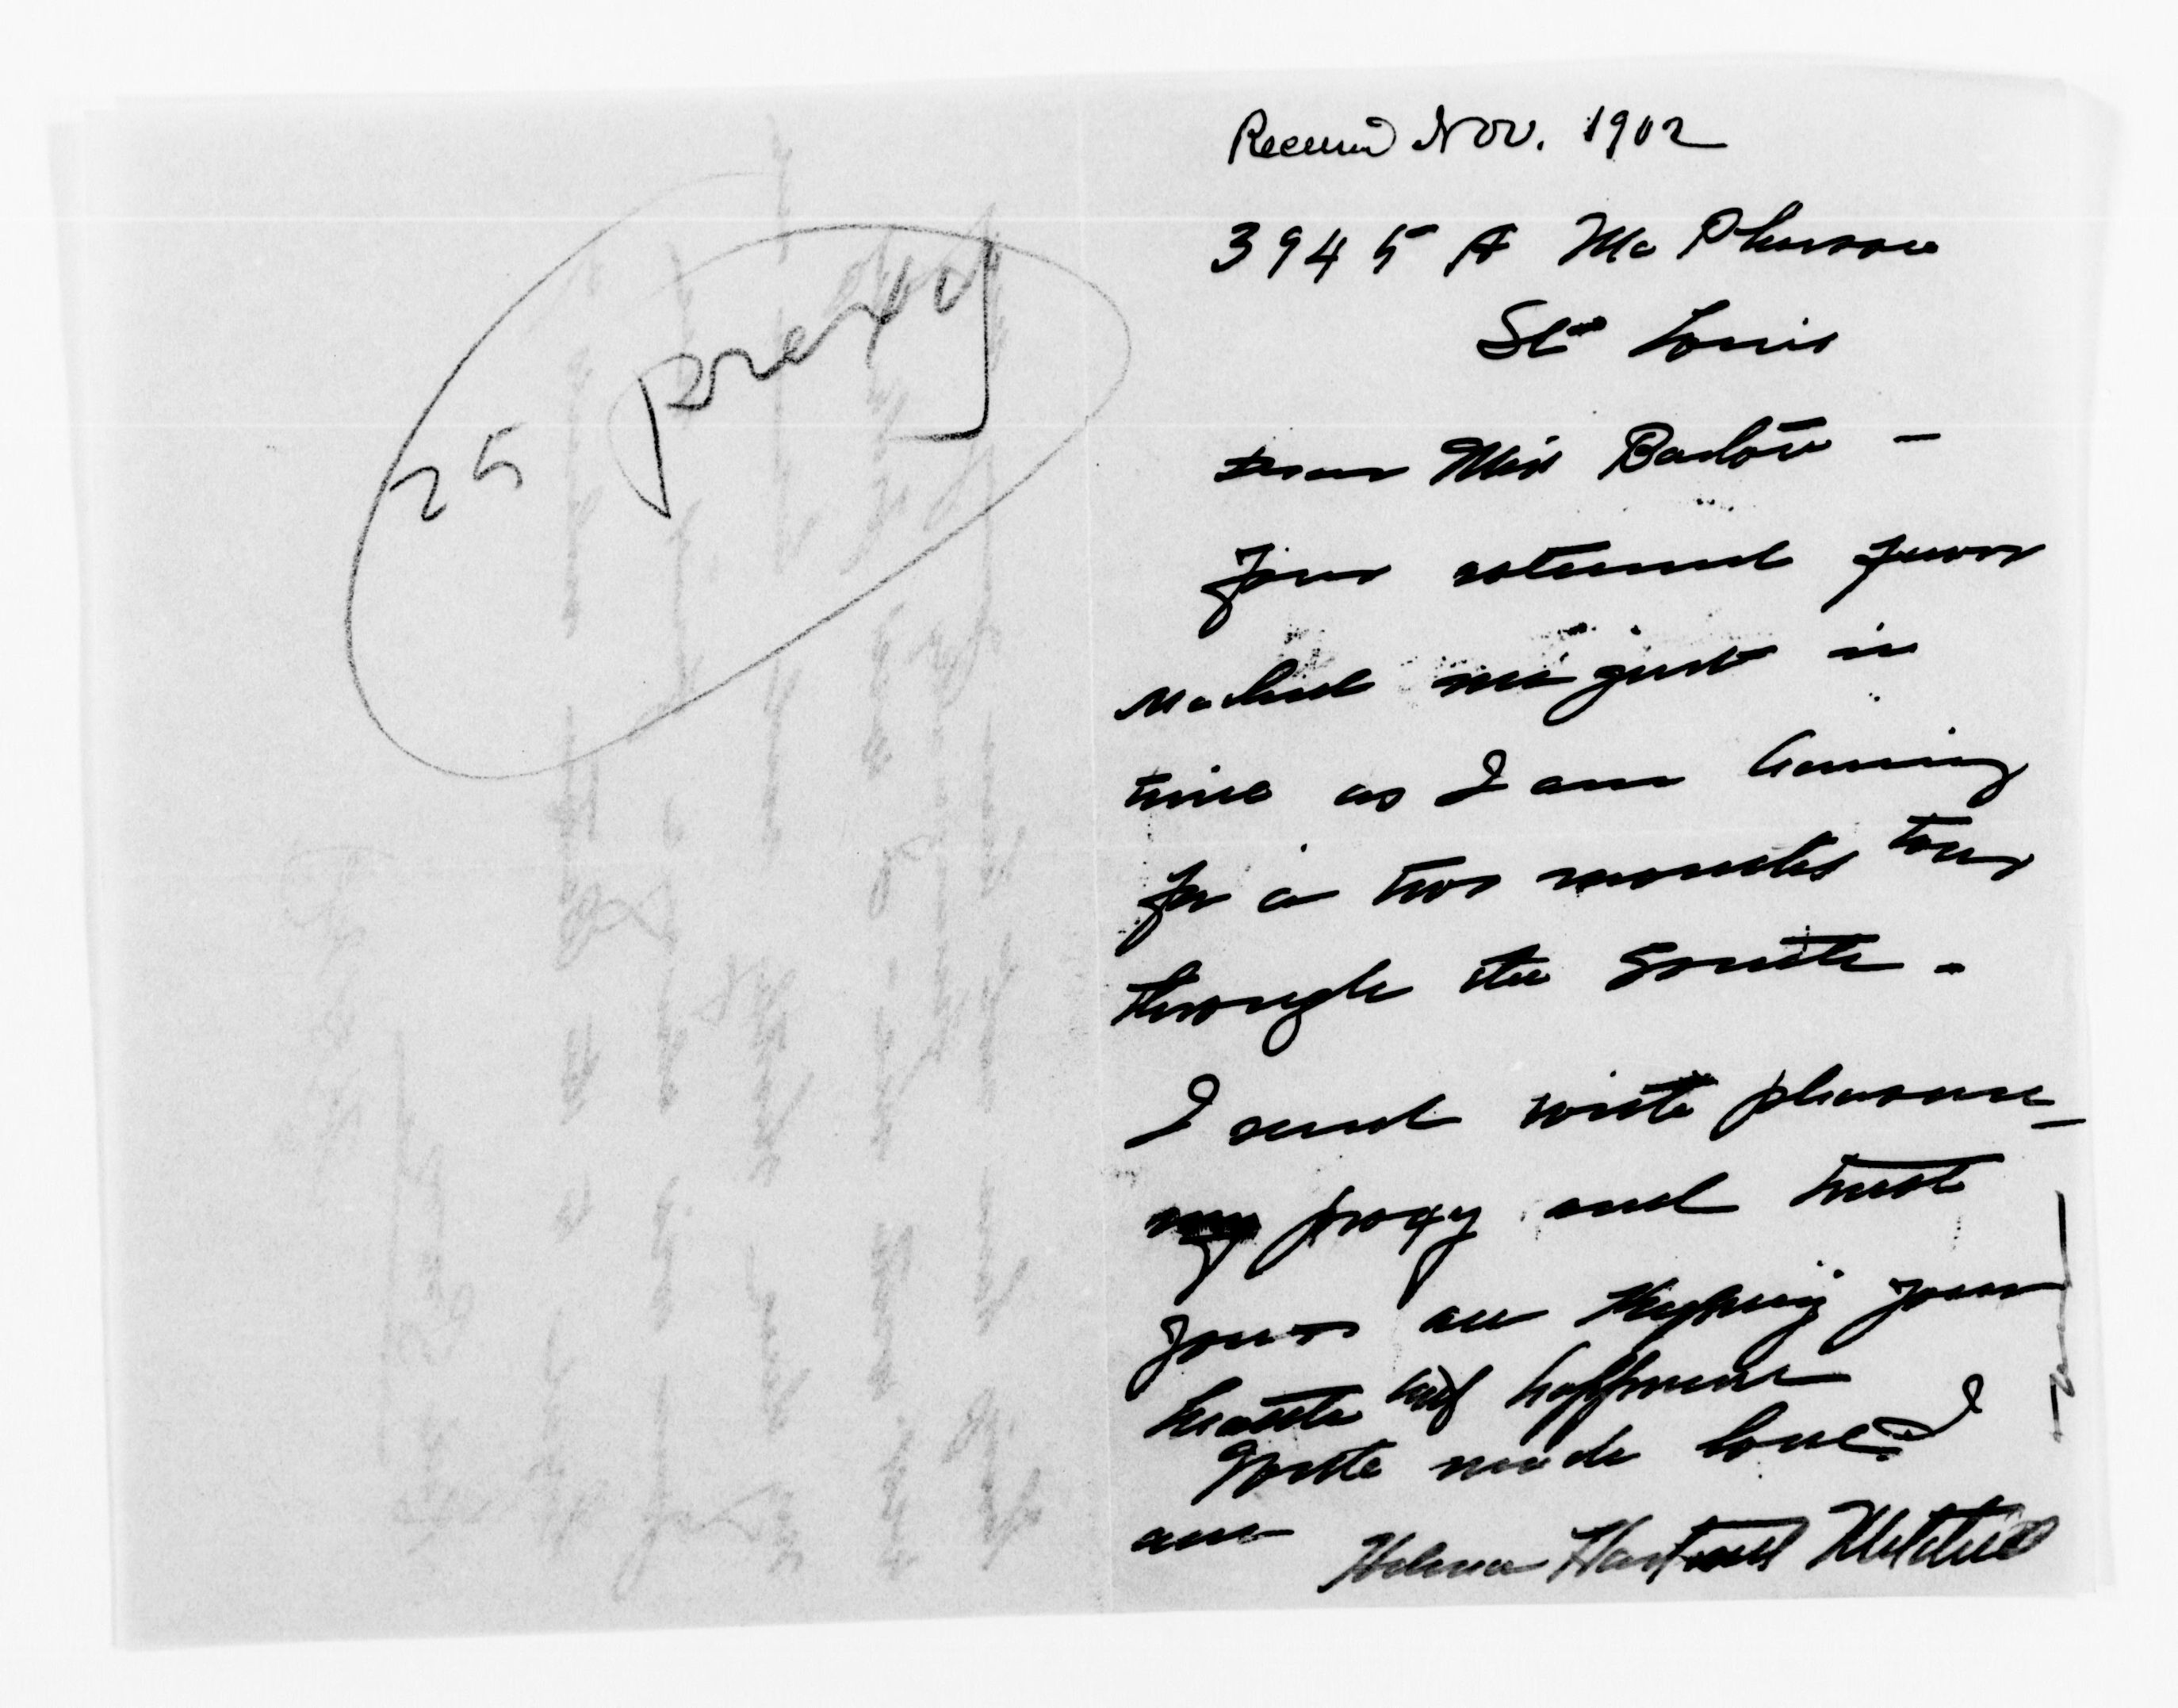 25 proxy
Received Nov. 1902
3945 A McPherson
St. Louis
Dear Miss Barton —
Your esteemed favor
reached me just in
time as I am leaving
for a two months tour
through the South -
I send with pleasure —
my proxy and trust
you are enjoying your
health and happiness
With much love I
am Helena Hartnell Mitchell